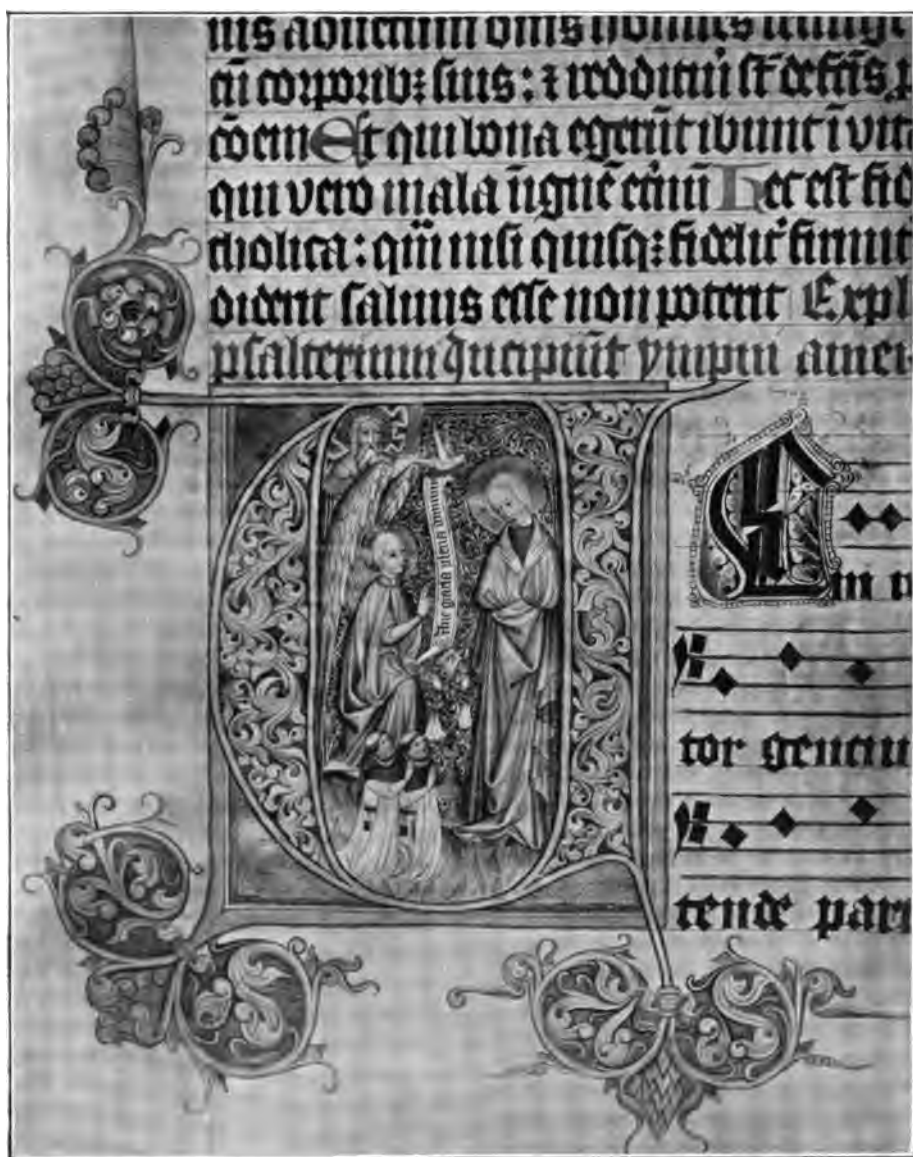 uis aduētum oms homines resurge
cū corporibꝫ suis: ⁊ reddituri st̄ de fc̄īs p
cōem Et qui bona egerūt ibunt ī vitā
qui vero mala ī ignē et̄nū Hec est fid
tholica: quā nisi quisqꝫ fidelit̄ firmit̄
diderit saluus esse non poterit Expl
psalterium Incipiūt ympni
Aue gracia plena dominus
eni r
tor genciu
tende par